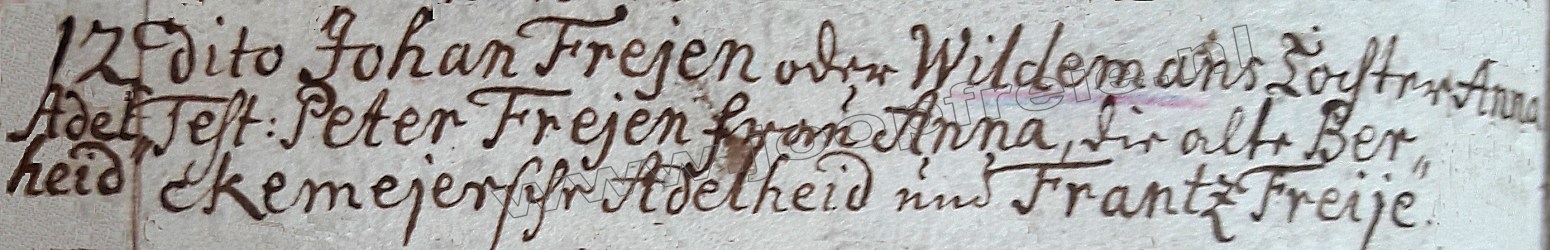 12 dito Johan Frejen oder Wildemans Tochter Anna
Adel Test: Peter Frejen frau Anna, die alte Ber„
heid" ckemejersche Adelheid und Frantz Freije.